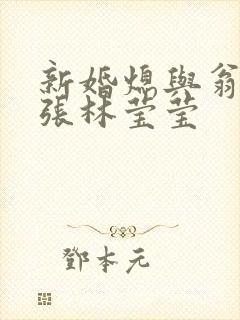 新婚熄與翁
張林莹莹
鄧本元